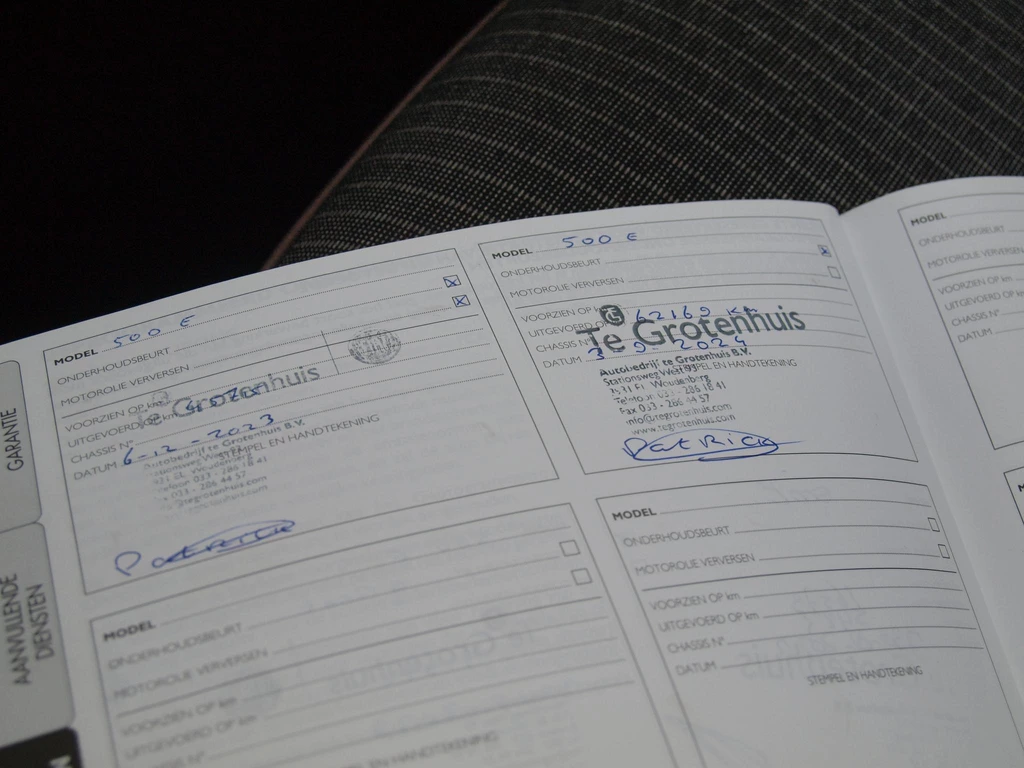 GARANTIE
AANVULLENDE
DIENSTEN
MODEL 500 E
ONDERHOUDSBEURT
MOTOROLIE VERVERSEN
VOORZIEN OP km
UITGEVOERD
CHASSIS N°
DATUM 6-12-2023
Grotenhuis
Autobedrijf te Grotenhuis B.V.
STEMPEL EN HANDTEKENING
Patrick
MODEL 500 E
ONDERHOUDSBEURT
MOTOROLIE VERVERSEN
VOORZIEN OP
UITGEVOERD 62169 KM
CHASSIS N°
Te Grotenhuis
DATUM 3-9-2024
Autobedrijf te Grotenhuis B.V.
Stationsweg West
STEMPEL EN HANDTEKENING
Woudenberg
Telefoon 033 - 286 18 41
Fax 033 - 286 44 57
info@tegrotenhuis.com
www.tegrotenhuis.com
Patrick
MODEL
ONDERHOUDSBEURT
MOTOROLIE VERVERSEN
VOORZIEN OP km
UITGEVOERD OP km
CHASSIS N°
EN HANDTEKENING
MODEL
ONDERHOUDSBEURT
MOTOROLIE VERVERSEN
VOORZIEN OP km
UITGEVOERD OP km
CHASSIS N°
DATUM
STEMPEL EN HANDTEKENING
MODEL
ONDERHOUDSBEURT
MOTOROLIE VERVERSEN
VOORZIEN OP km
UITGEVOERD OP
CHASSIS N°
DATUM